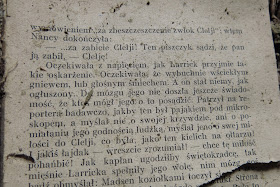 wymówieniem „za zbeszczeszczenie zwłok Clelji", wtem
Nancy dokończyła:
...za zabicie Clelji! Ten suszczyk sądzi, że pan
Ją zabił, — Clelję!
Oczekiwała z napięciem, jak Larrick przyjmie ta-
kie oskarżenie. Oczekiwała, że wybuchnie wściekłym
gniewem, lub głośnym śmiechem. A on stał niemy, jak
ogłuszony. Do mózgu jego nie doszła jeszcze świado-
mość, że ktoś mógł jego o to posądzić. Patrzył na re-
portera badawczo, jakby ten był pająkiem pod mikro-
skopem, a myślał nie o swojej krzywdzie, ani o po-
miataniu jego godnością ludzką, myślał jeno o swej
ilości do Clelji, co była, jako ten kielich na ołtarzu
jakiś łajdak — wreszcie zrozumiał — chce tę miłość
pohańbić! Jak kapłan, godziłby świętokradc, tak
mięśnie Larricka spełniły jego wolę, nim mózg
bądź pomyślał. Madsen koziołkami toczył się
Strona